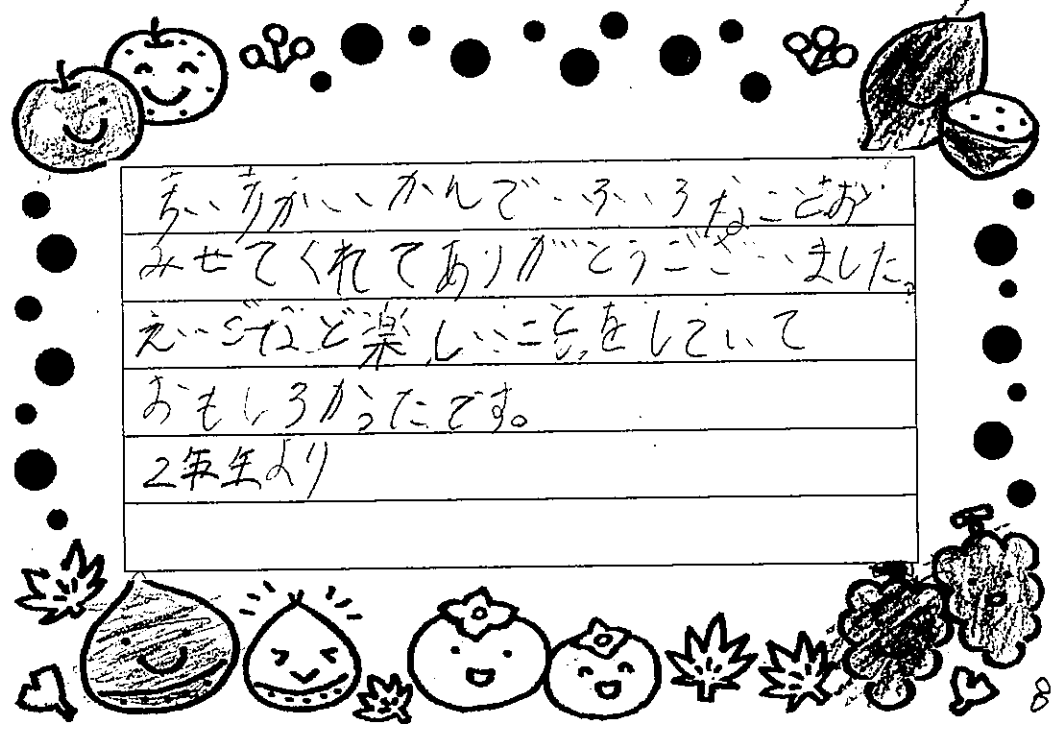 かんでいろいろなことお
みせてくれてありがとうございました。
えいごなど楽しいことをしていて
おもしろかったです。
2年生より
8